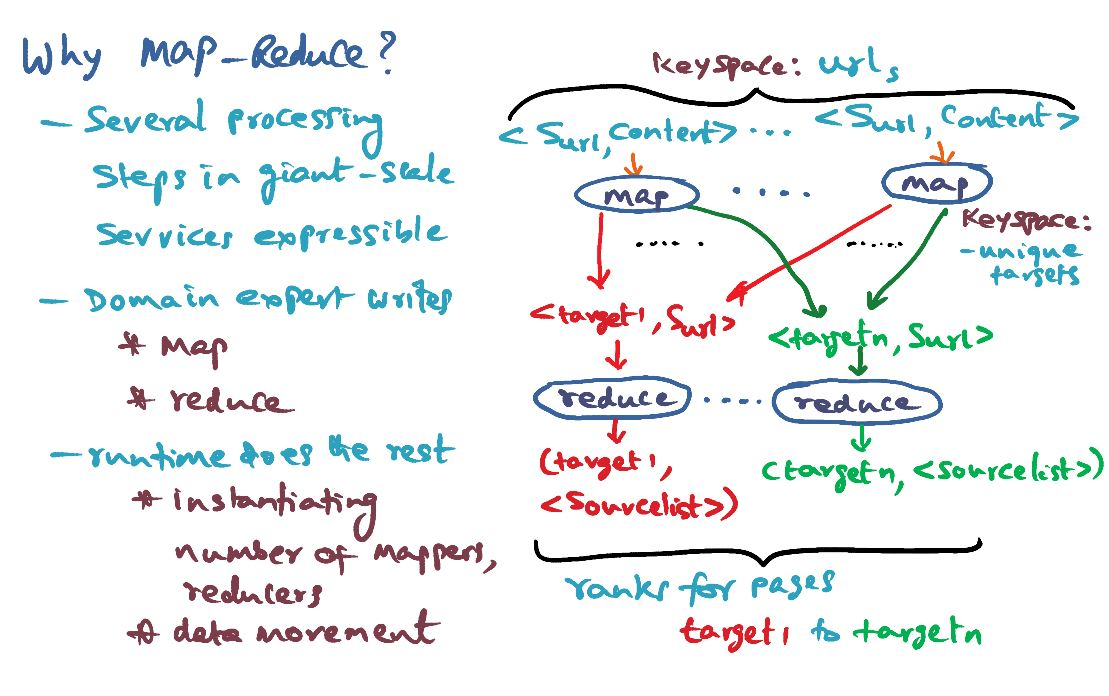 Why Map-Reduce?
- Several processing
Steps in giant-scale
Services expressible
- Domain expert writes
* Map
* reduce
- runtime does the rest
* instantiating
number of Mappers,
reducers
* data movement
Keyspace: urls
<Surl, Content> .... <Surl, Content>
map ..... map
Keyspace:
- unique
targets
..... .....
<target1, Surl>
<targetn, Surl>
reduce ..... reduce
(target1,
<Sourcelist>)
(targetn, <sourcelist>)
ranks for pages
target1 to targetn